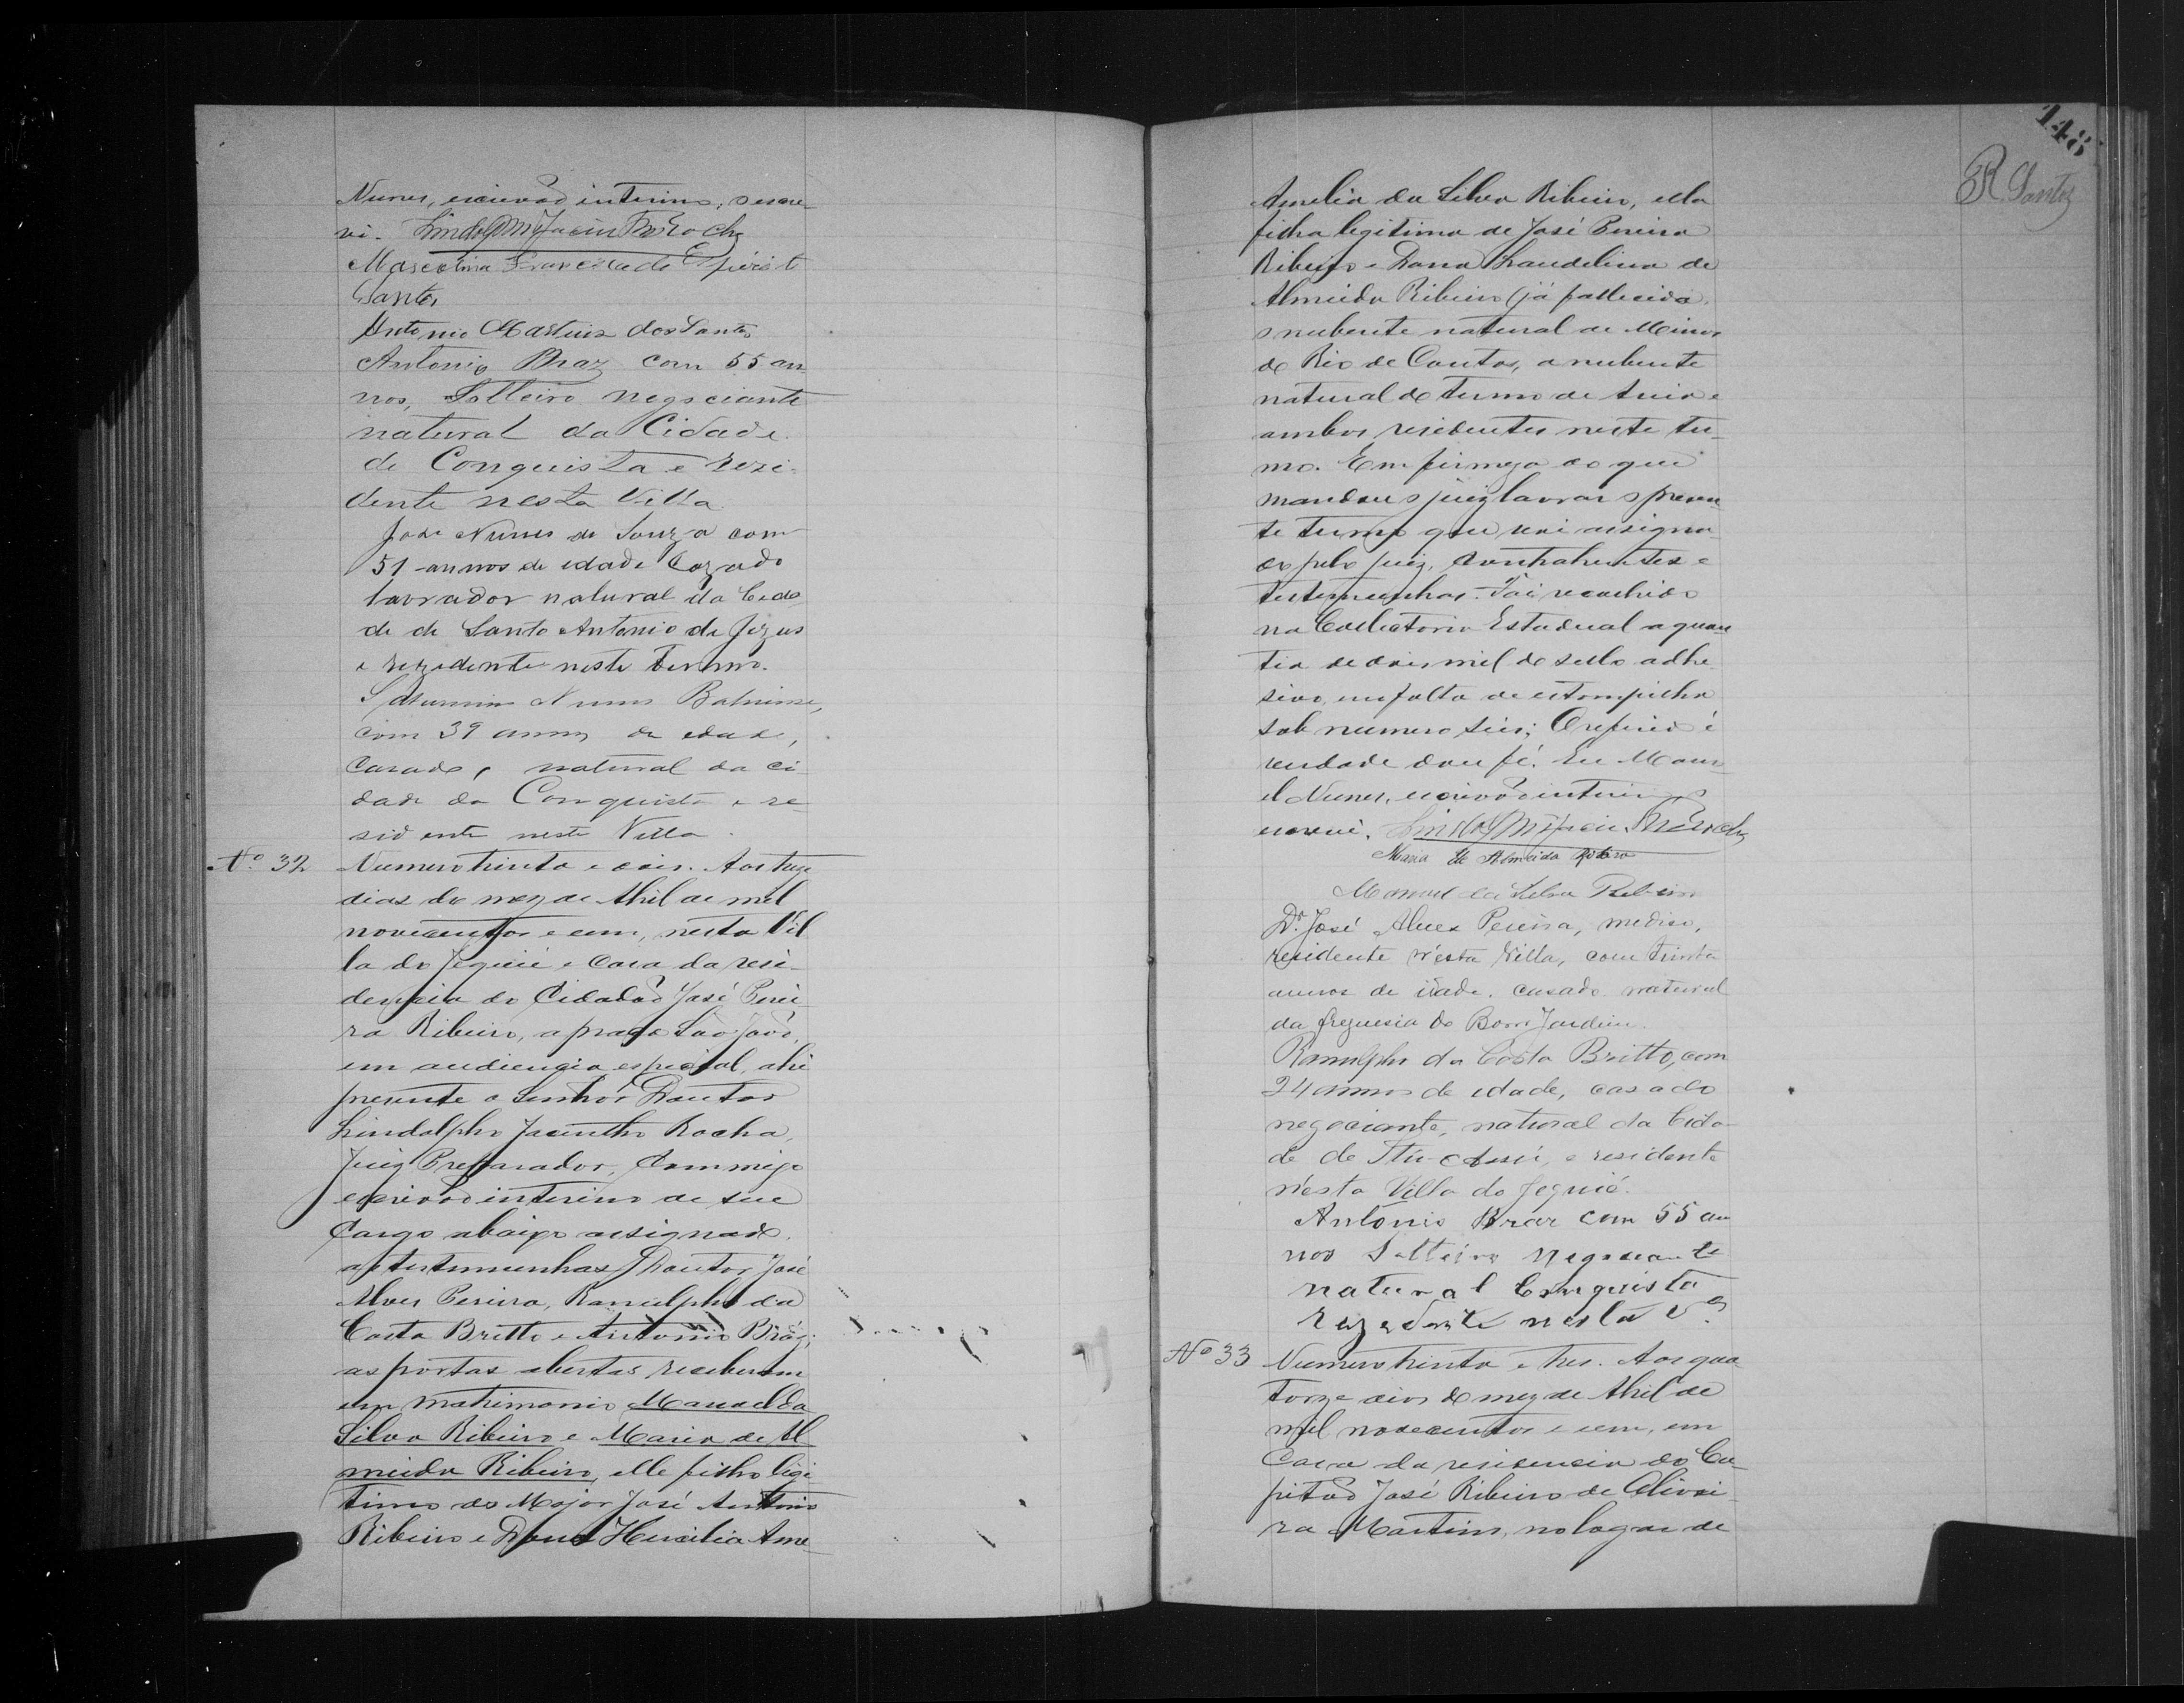 Nunes, escrivão interino, o escre-
vi. Lindolpho Jacintho Rocha
Marcolina Francisca do Espirito
Santo
Antonio Martins dos Santos
Antonio Braz com 55 an
nos, Solteiro negociante
natural da Cidade
de Conquista e rezi-
dente nesta Villa
José Nunes de Souza com
51 annos de edade Cazado
lavrador natural da Cida
de de Santo Antonio de Jezus
e rezidente neste termo.
Nunes Bahiense,
com 39 annos de edade,
Casado, natural da ci
dade da Conquista e re
sidente nesta Villa.
Nº 32 Numero trinta e dois. Aos treze
dias do mez de Abril de mil
novecentos e cem, nesta Vil
la do Jequié e Casa da resi-
dencia do Cidadão José Perei
ra Ribeiro, a praça São João,
em audiencia especial, ahi
presente o Senhor Doutor
Lindolpho Jacintho Rocha,
Juiz Preparador, Commigo
escrivão interino de seu
Cargo abaixo assignado,
as testemunhas Doutor José
Alves Pereira, Ranulpho da
Costa Britto e Antonio Bráz;
as portas abertas receberam
em matrimonio Manoel da
Silva Ribeiro e Maria de Al
meida Ribeiro, elle filho legi
timo do Major José Antonio
Ribeiro e Dona Hercilia Ame-
148
R. Santos
Amelia da Silva Ribeiro, ella
filha legitima de José Pereira
Ribeiro e Dona Laudelina de
Almeida Ribeiro (já fallecida,
o nubente natural de Minas
do Rio de Contas, a nubente
natural do termo de Areia e
ambos residentes neste ter-
mo. Em firmeza do que
mandou o juiz lavrar o presen
te termo que vai assigna
do pelo juiz, contrahentes e
testemunhas. Foi recolhido
na Collectoria Estadual a quan
tia de dois mil do sello adhe
sivo, em falta de estampilha
sob numero seis; O referido é
verdade dou fé. Eu Mano
el Nunes, escrivão interino
escrevi. Lindolpho Jacintho Rocha
Maria de Almeida Ribeiro
Manoel da Silva Ribeiro
Dr. José Alves Pereira, medico,
residente n'esta Villa, com trinta
annos de idade, casado natural
da freguesia do Bom Jardim.
Ranulpho da Costa Britto, com
24 annos de edade, casado
negociante, natural da Cida-
de de Itu-Assú, e residente
n'esta Villa do Jequié.
Antonio Braz com 55 an
nos Solteiro negociante
natural Conquista
rezidente nesta Vª
Nº 33 Numero trinta e tres. Aos qua
torze dias do mez de Abril de
mil novecentos e cem, em
Casa da residencia do Ca-
pitão José Ribeiro de Olivei
ra Martins, no logar de